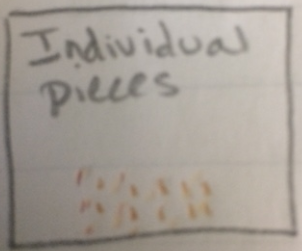 Individual
pieces